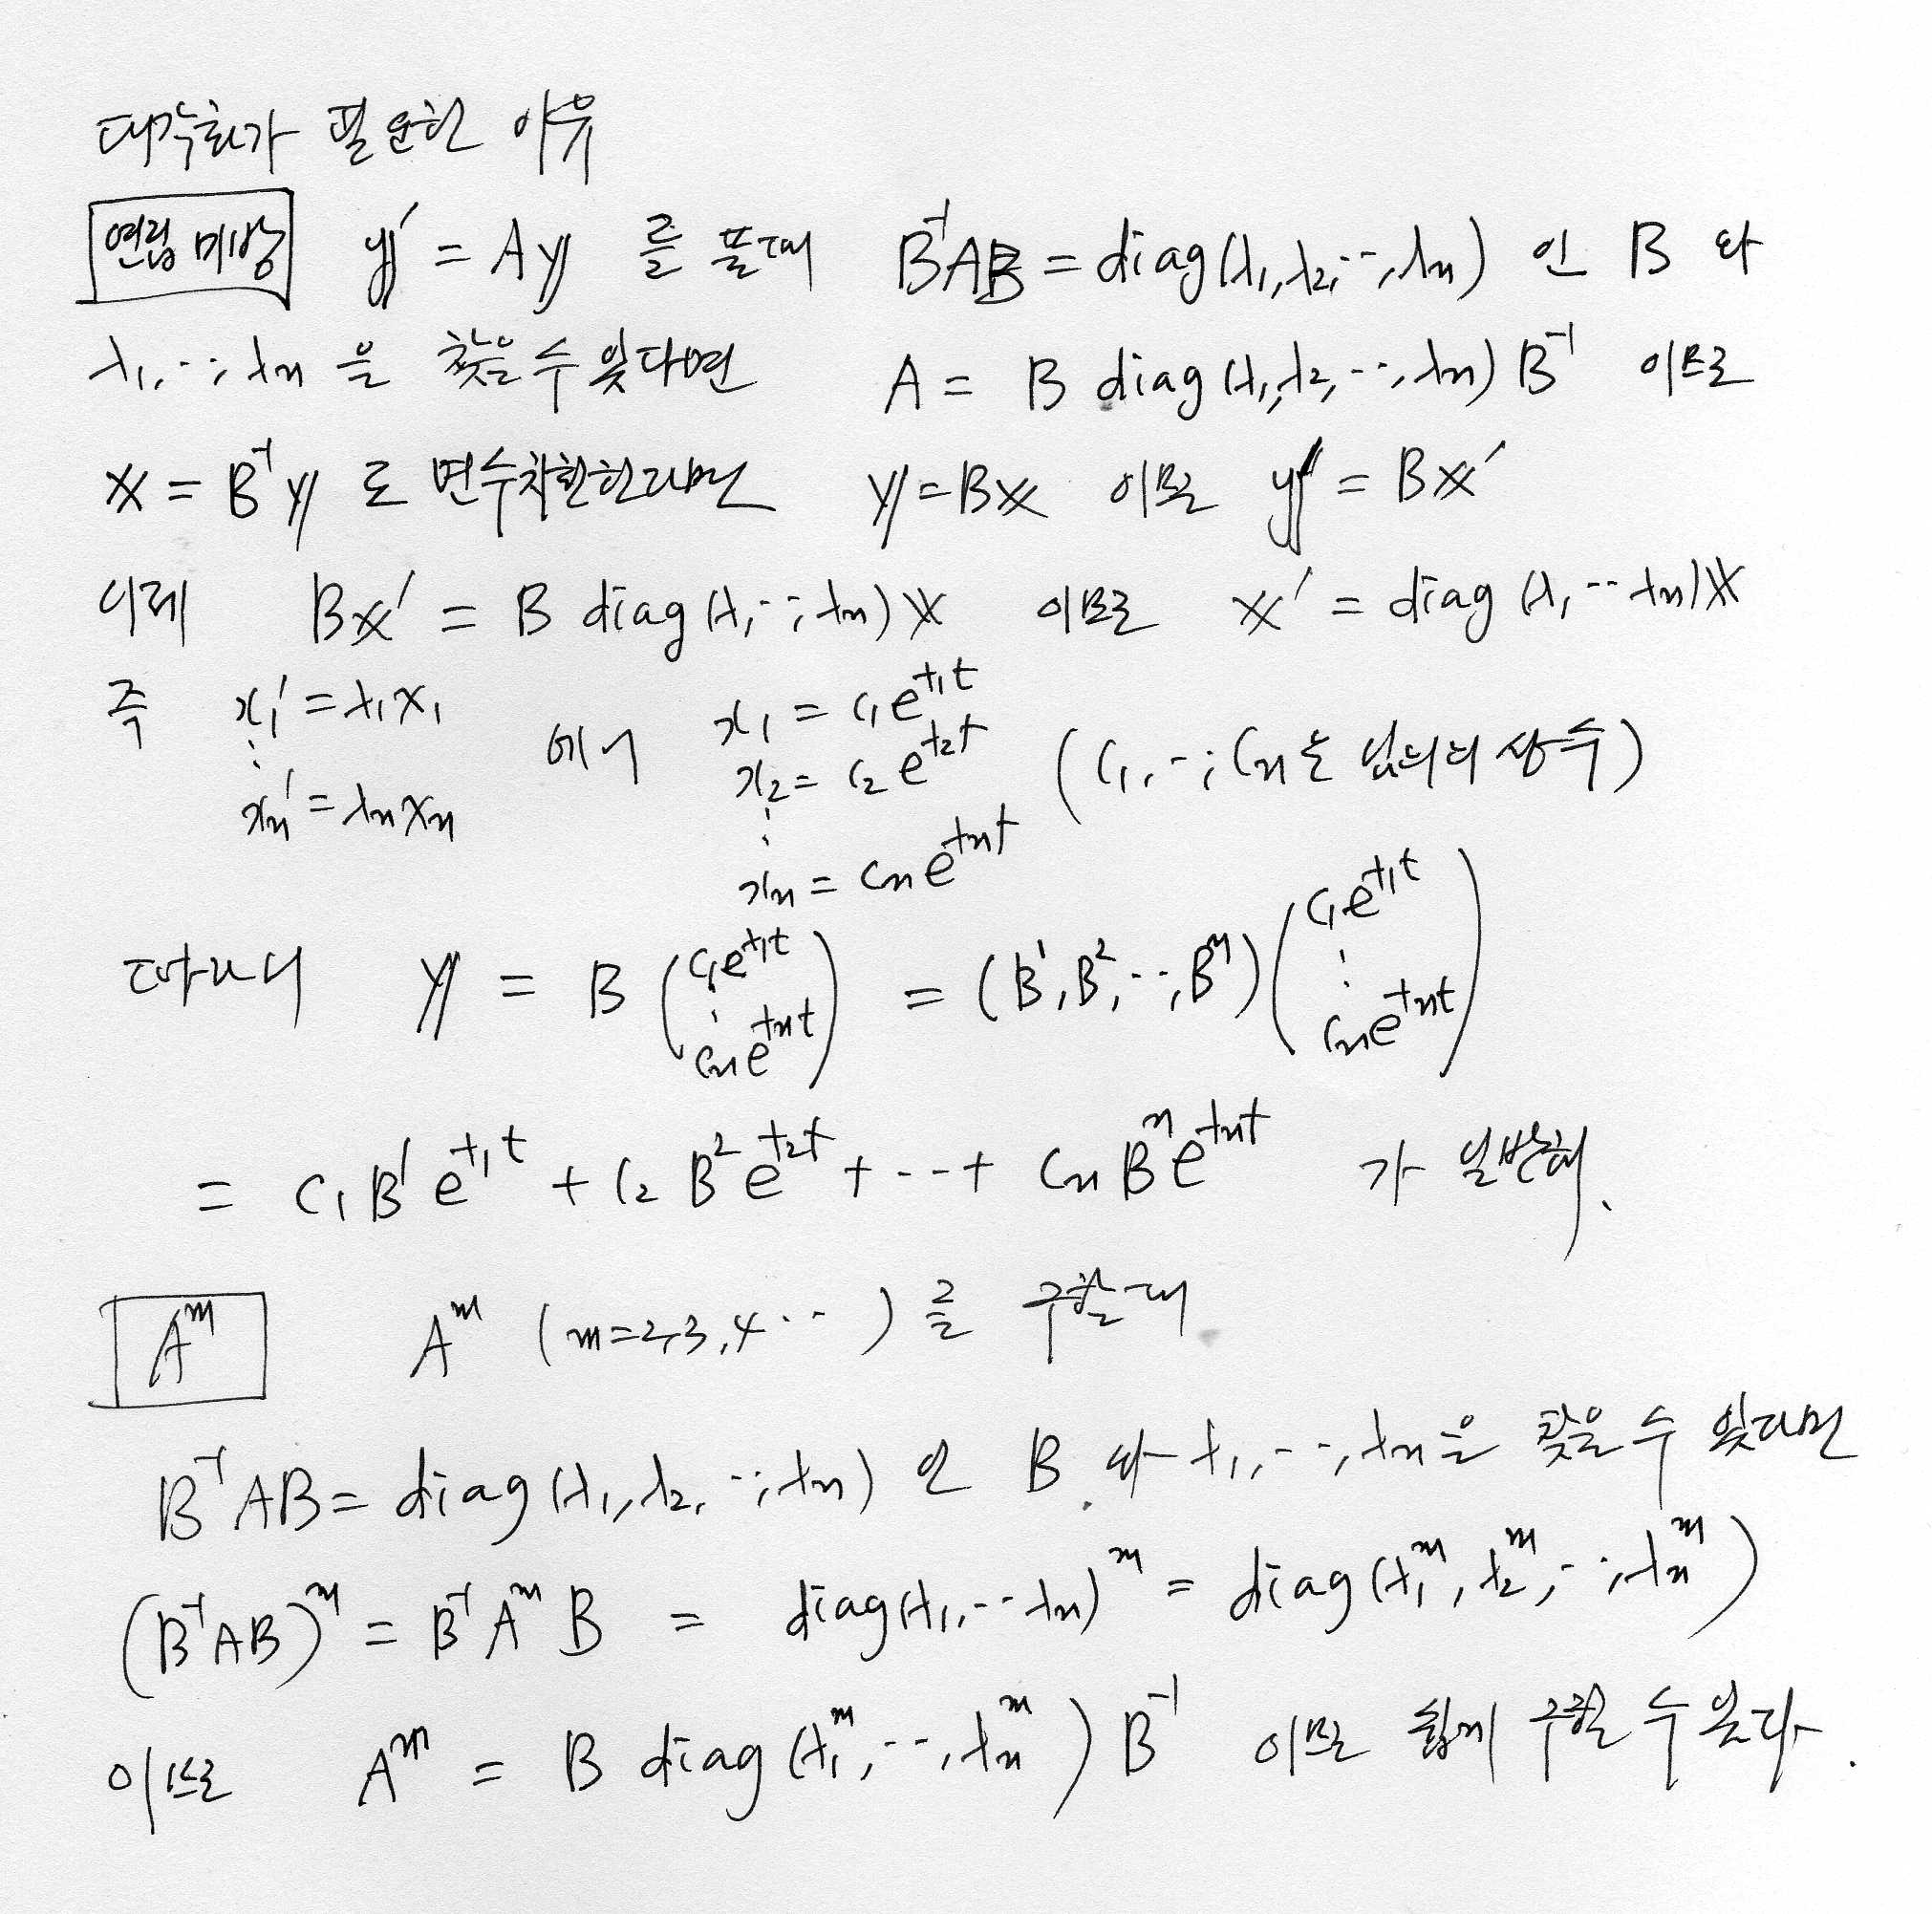 대각화가 필요한 이유
연립미방 y' = Ay 를 풀때 B⁻¹AB = diag(λ₁, λ₂, ‥, λn) 인 B 와
λ₁, ‥, λn 을 찾을 수 있다면 A = B diag(λ₁, λ₂, ‥, λn) B⁻¹ 이므로
x = B⁻¹y 로 변수치환한다면 y = Bx 이므로 y' = Bx'
이제 Bx' = B diag(λ₁, ‥, λn) x 이므로 x' = diag(λ₁, ‥ λn) x
즉 x₁' = λ₁x₁
⋮
xn' = λn xn
에서 x₁ = c₁e^{λ₁t}
x₂ = c₂e^{λ₂t}
⋮
xn = cn e^{λnt}
(c₁, ‥, cn은 임의의 상수)
따라서 y = B (c₁e^{λ₁t} ⋮ cn e^{λnt}) = (B¹, B², ‥, Bⁿ) (c₁e^{λ₁t} ⋮ cn e^{λnt})
= c₁B¹e^{λ₁t} + c₂B²e^{λ₂t} + ‥‥ + cnBⁿe^{λnt} 가 일반해.
Aᵐ Aᵐ (m=2,3,4 ‥) 를 구할때
B⁻¹AB = diag(λ₁, λ₂, ‥, λn) 인 B 와 λ₁, ‥, λn을 찾을 수 있다면
(B⁻¹AB)ᵐ = B⁻¹AᵐB = diag(λ₁, ‥ λn)ᵐ = diag(λ₁ᵐ, λ₂ᵐ, ‥, λnᵐ)
이므로 Aᵐ = B diag(λ₁ᵐ, ‥, λnᵐ) B⁻¹ 이므로 쉽게 구할 수 있다.